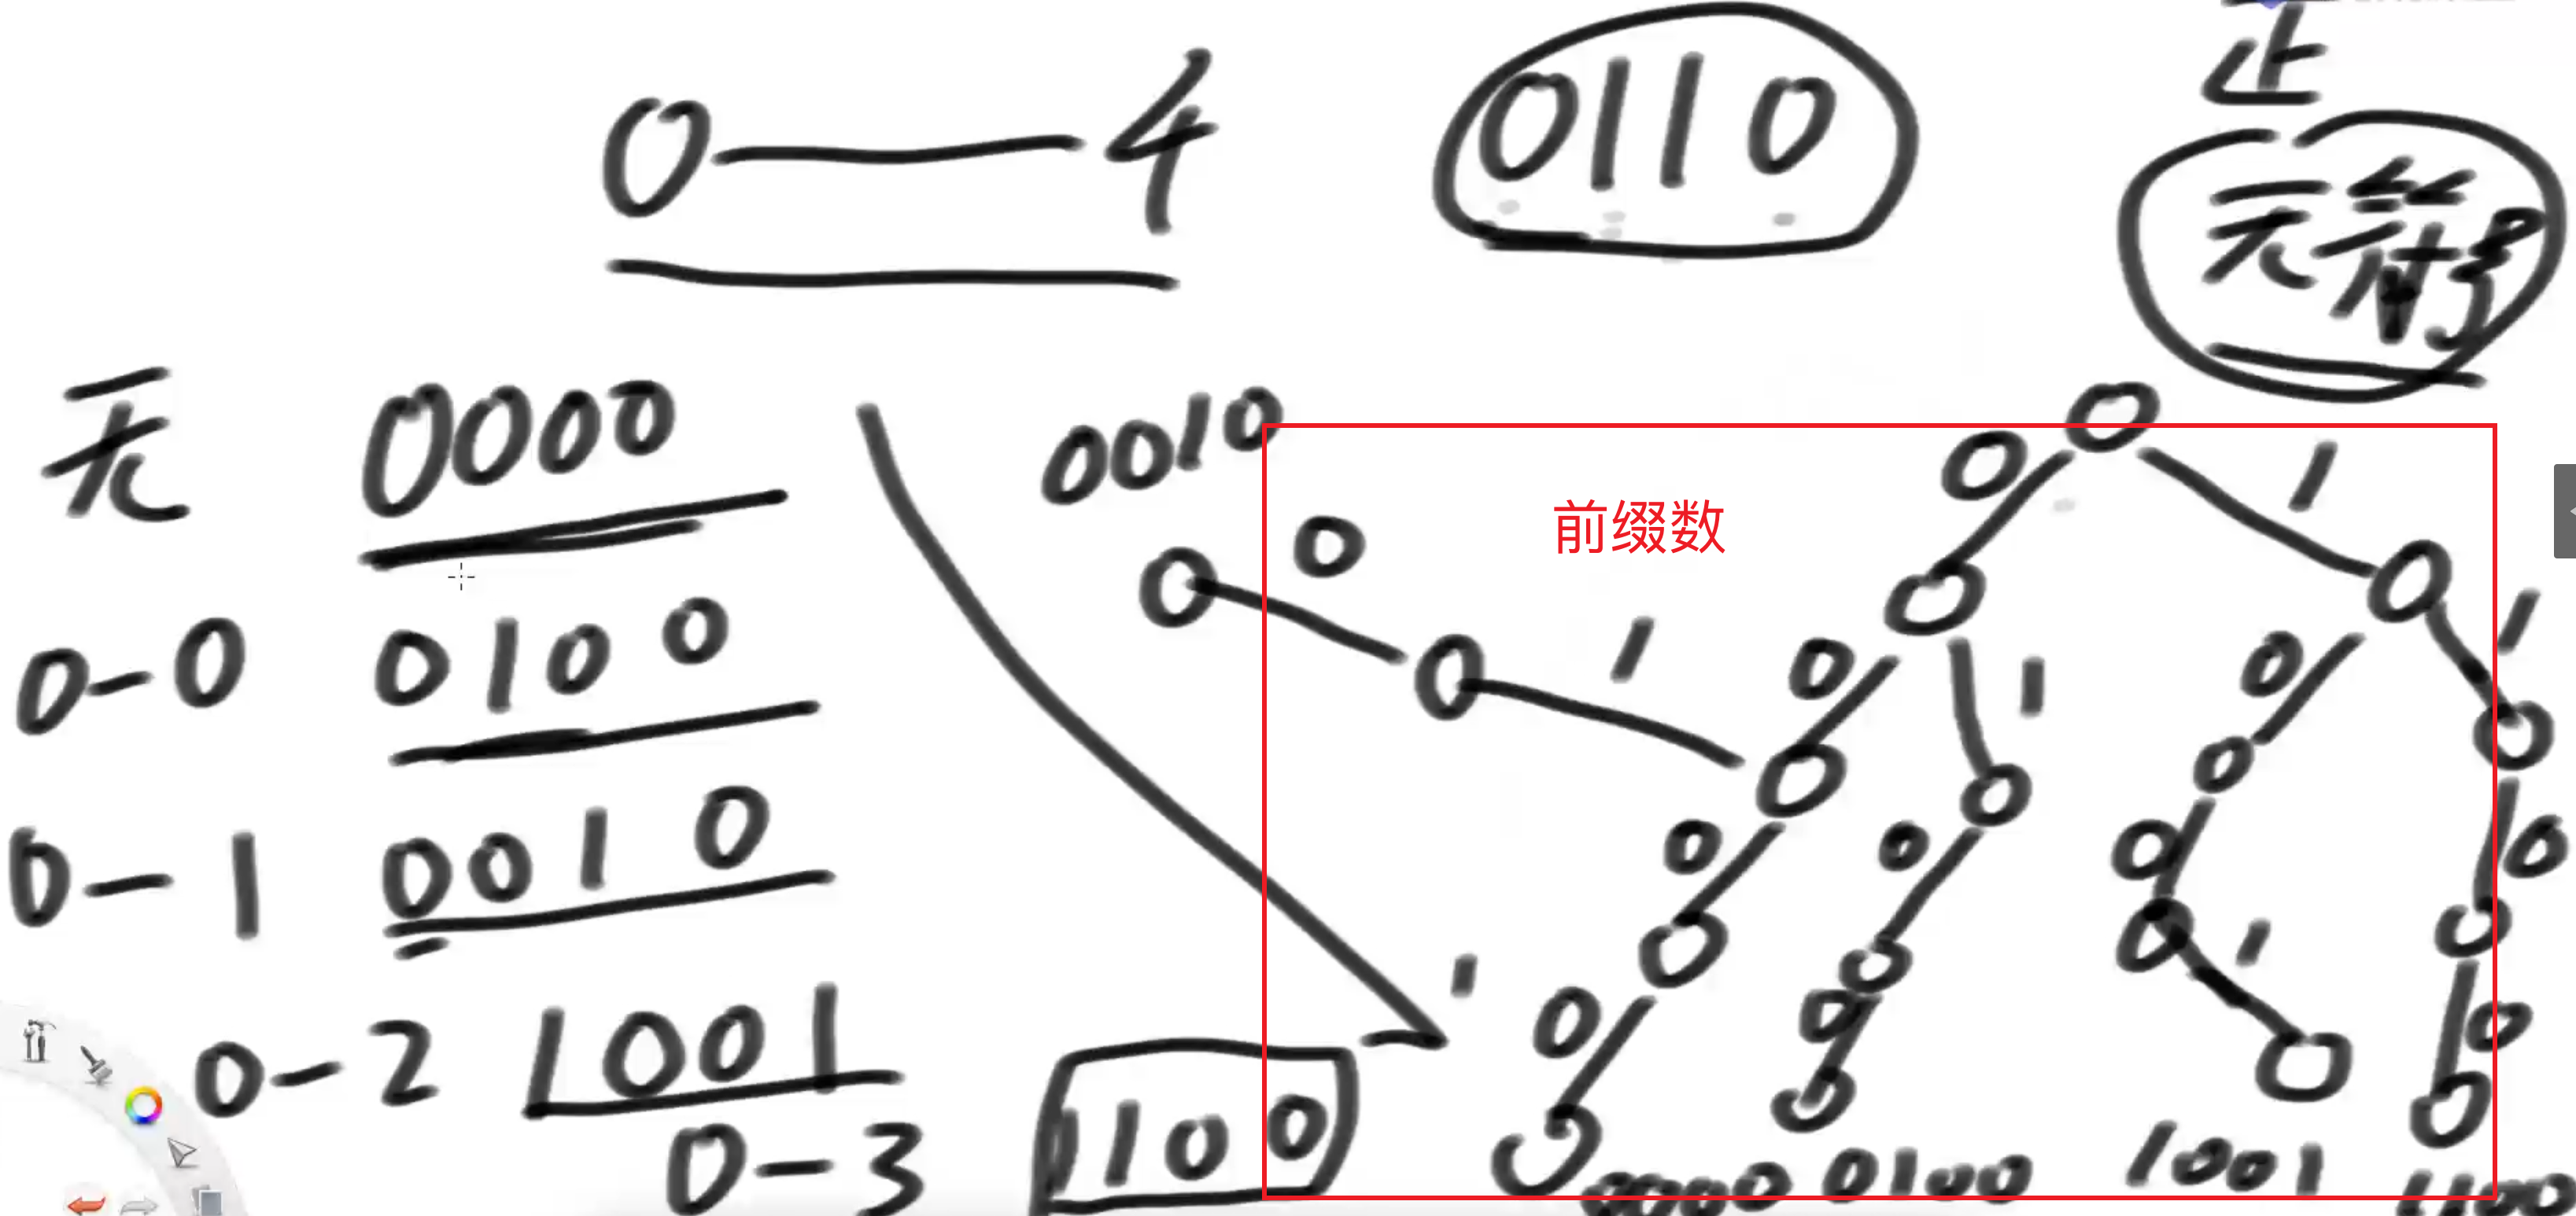 正
0 — 4
0110
无符号
无 0000
0-0 0100
0-1 0010
0-2 1001
0-3 1100
0010
前缀数
0 1
0 1
0 1
0 1
0 0 0 0
1
0 0 1 0
0000 0100 1001 1100